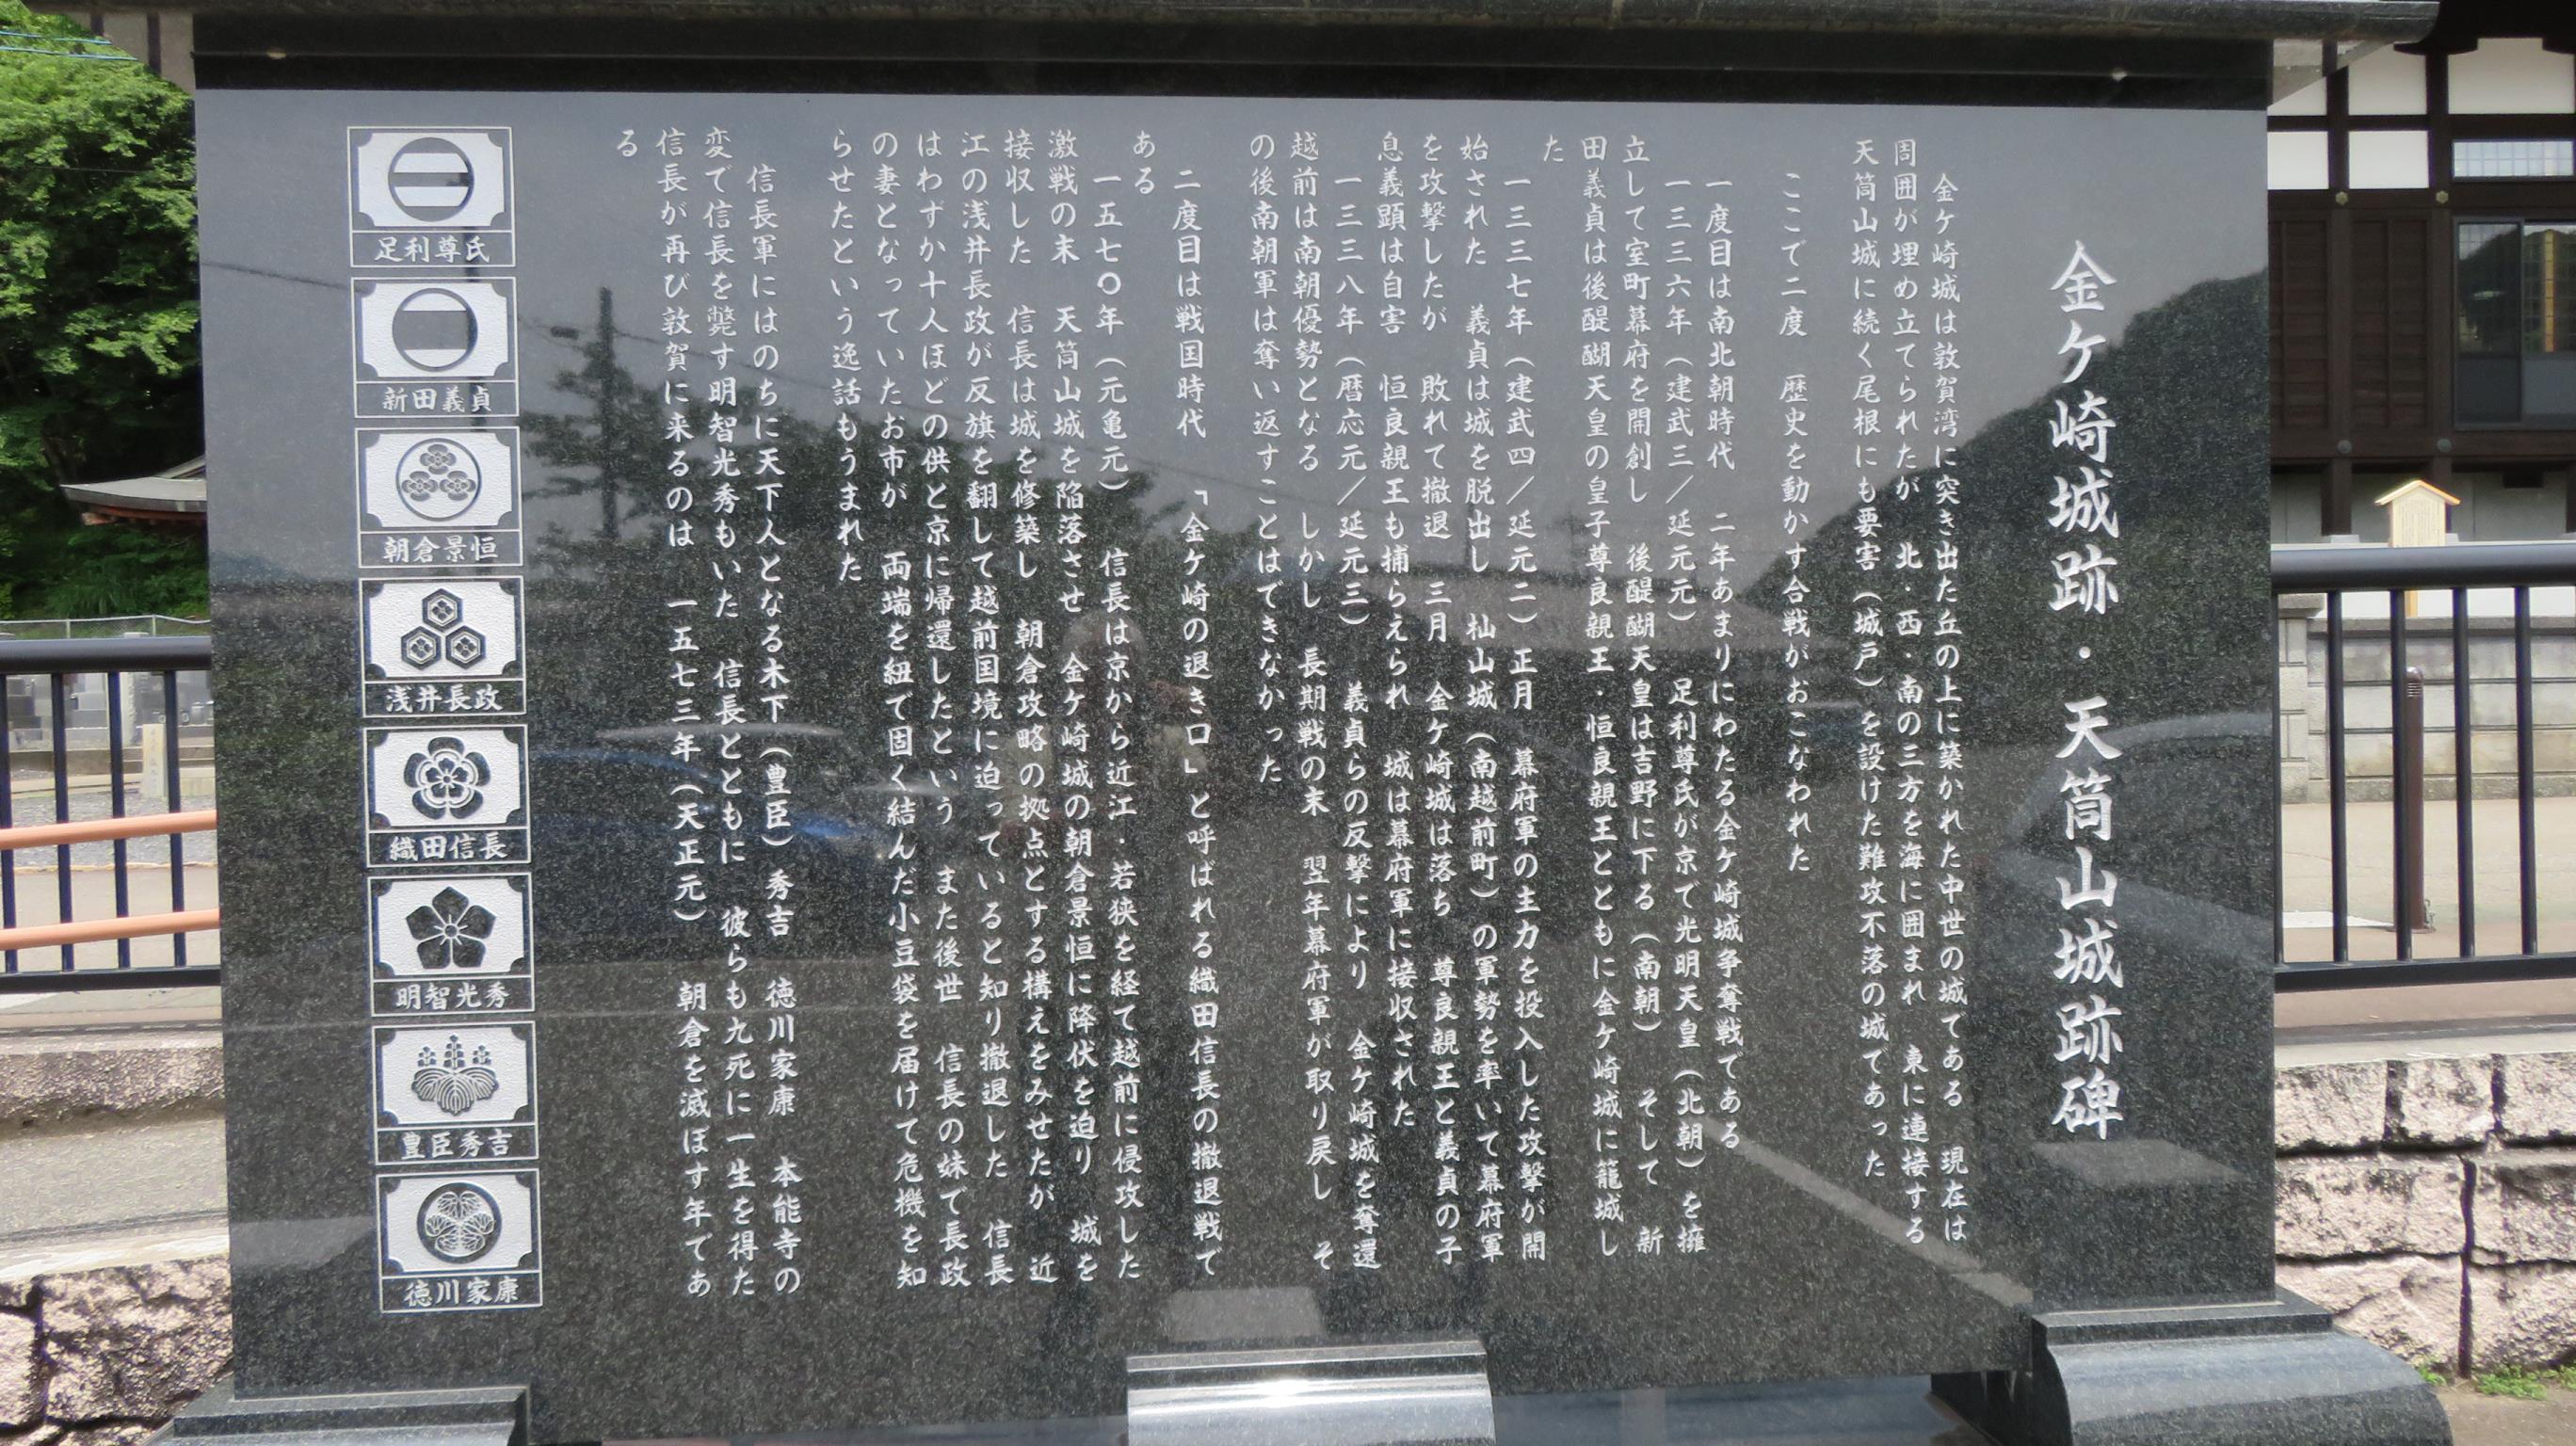 金ケ崎城跡・天筒山城跡碑
金ケ崎城は敦賀湾に突き出た丘の上に築かれた中世の城である　現在は
周囲が埋め立てられたが　北・西・南の三方を海に囲まれ　東に連接する
天筒山城に続く尾根にも要害（城戸）を設けた難攻不落の城であった
ここで二度　歴史を動かす合戦がおこなわれた
一度目は南北朝時代　二年あまりにわたる金ケ崎城争奪戦である
一三三六年（建武三／延元元）足利尊氏が京で光明天皇（北朝）を擁
立して室町幕府を開創し　後醍醐天皇は吉野に下る（南朝）　そして　新
田義貞は後醍醐天皇の皇子尊良親王・恒良親王とともに金ケ崎城に籠城し
た
一三三七年（建武四／延元二）正月　幕府軍の主力を投入した攻撃が開
始された　義貞は城を脱出し　杣山城（南越前町）の軍勢を率いて幕府軍
を攻撃したが　敗れて撤退　三月　金ケ崎城は落ち　尊良親王と義貞の子
息義顕は自害　恒良親王も捕らえられ　城は幕府軍に接収された
一三三八年（暦応元／延元三）　義貞らの反撃により　金ケ崎城を奪還
越前は南朝優勢となる　しかし　長期戦の末　翌年幕府軍が取り戻し　そ
の後南朝軍は奪い返すことはできなかった
二度目は戦国時代　「金ケ崎の退き口」と呼ばれる織田信長の撤退戦で
ある
一五七〇年（元亀元）　信長は京から近江・若狭を経て越前に侵攻した
激戦の末　天筒山城を陥落させ　金ケ崎城の朝倉景恒に降伏を迫り　城を
接収した　信長は城を修築し　朝倉攻略の拠点とする構えをみせたが　近
江の浅井長政が反旗を翻して越前国境に迫っていると知り撤退した　信長
はわずか十人ほどの供と京に帰還したという　また後世　信長の妹で長政
の妻となっていたお市が　両端を紐で固く結んだ小豆袋を届けて危機を知
らせたという逸話もうまれた
信長軍にはのちに天下人となる木下（豊臣）秀吉　徳川家康　本能寺の
変で信長を斃す明智光秀もいた　信長とともに　彼らも九死に一生を得た
信長が再び敦賀に来るのは　一五七三年（天正元）　朝倉を滅ぼす年であ
る
足利尊氏
新田義貞
朝倉景恒
浅井長政
織田信長
明智光秀
豊臣秀吉
徳川家康